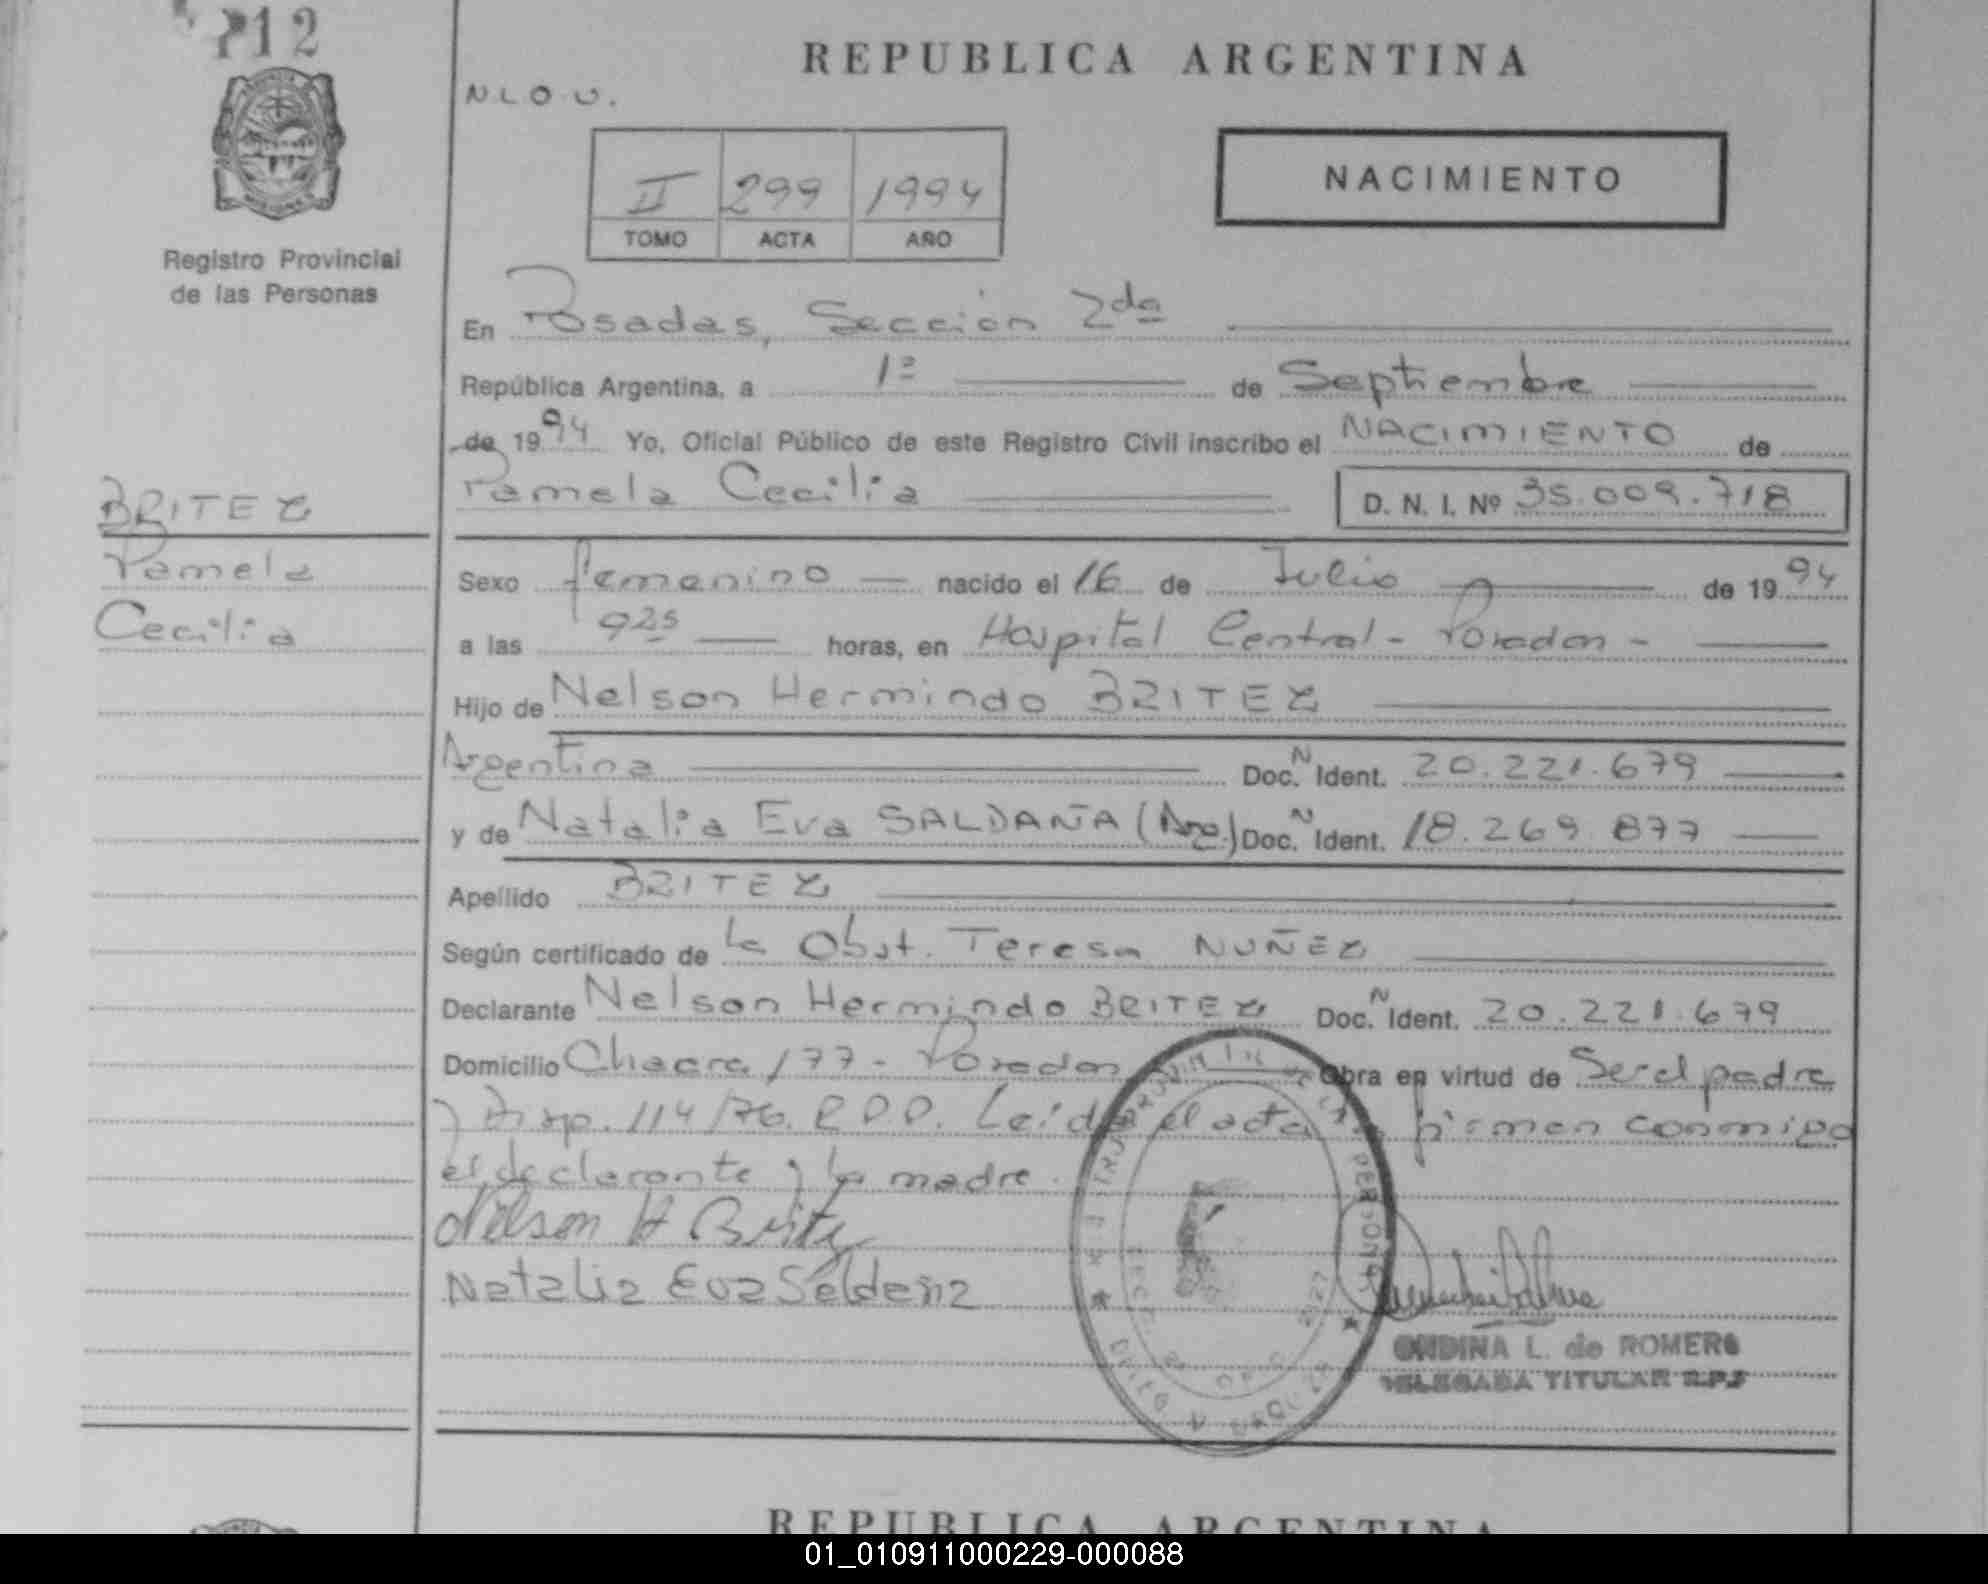 212
REPUBLICA ARGENTINA
N L O U.
II 299 1994
TOMO ACTA AÑO
NACIMIENTO
Registro Provincial
de las Personas
En Posadas, Sección 2da
República Argentina, a 1º de Septiembre
de 1994 Yo, Oficial Público de este Registro Civil inscribo el NACIMIENTO de
Pamela Cecilia D. N. I. Nº 35.009.718
BRITEZ
Pamela
Cecilia
Sexo femenino nacido el 16 de Julio de 1994
a las 925 horas, en Hospital Central - Posadas -
Hijo de Nelson Hermindo BRITEZ
Argentina Doc. N Ident. 20.221.679
y de Natalia Eva SALDAÑA (Arg.) Doc. N Ident. 18.269.877
Apellido BRITEZ
Según certificado de la Obst. Teresa NUÑEZ
Declarante Nelson Hermindo BRITEZ Doc. N Ident. 20.221.679
Domicilio Chacra 177 - Posadas Obra en virtud de Ser el padre
y Disp. 114/76. R.P.P. Leída el acta firman conmigo
el declarante y la madre.
Nelson H Britez
Natalia Eva Saldaña
ONDINA L. de ROMERO
DELEGADA TITULAR R.P.S
REPUBLICA ARGENTINA
01_010911000229-000088